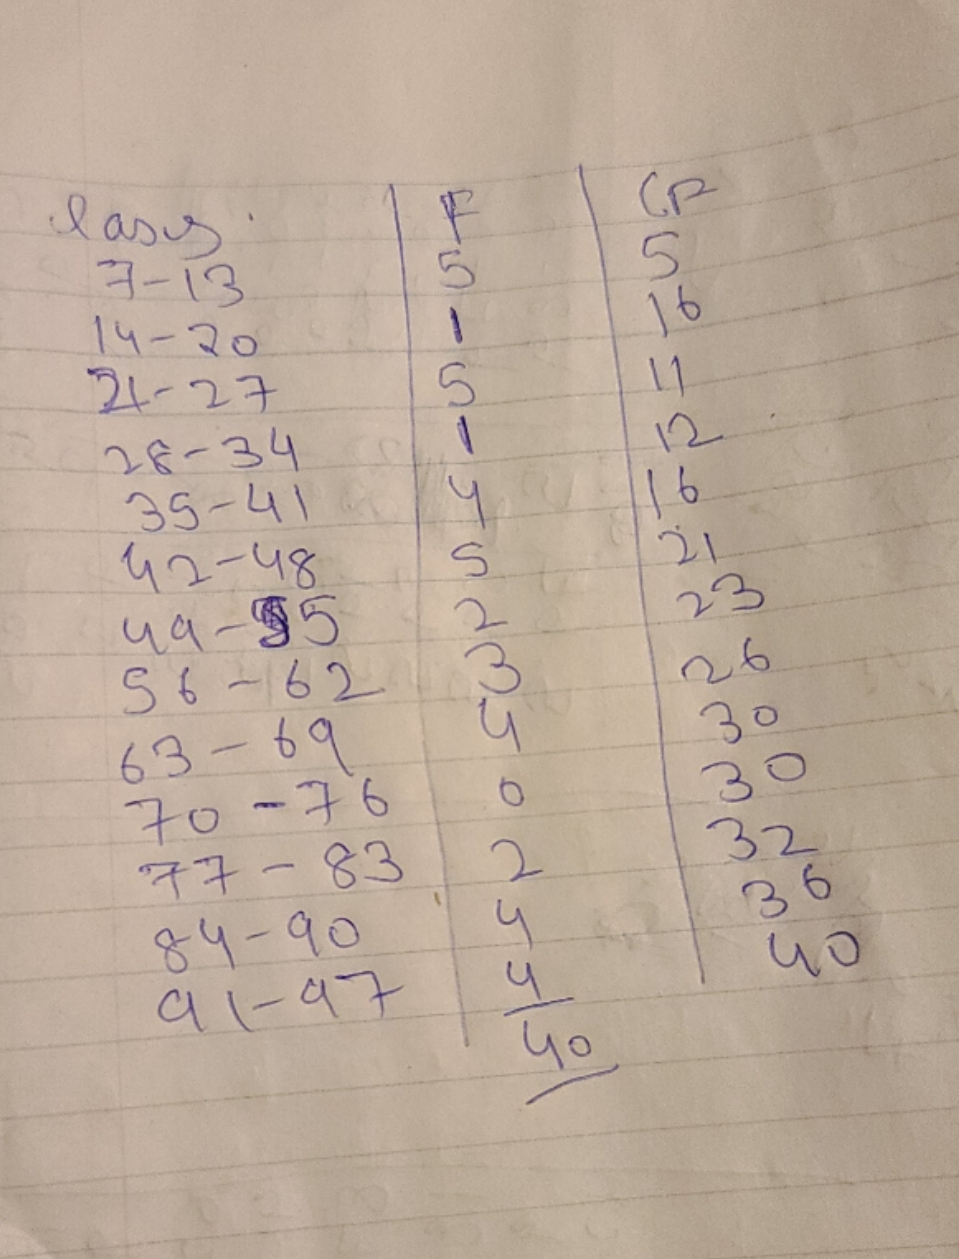 Clases F CF
7-13 5 5
14-20 1 16
21-27 5 11
28-34 1 12
35-41 4 16
42-48 5 21
49-55 2 23
56-62 3 26
63-69 4 30
70-76 0 30
77-83 2 32
84-90 4 36
91-97 4 40
40